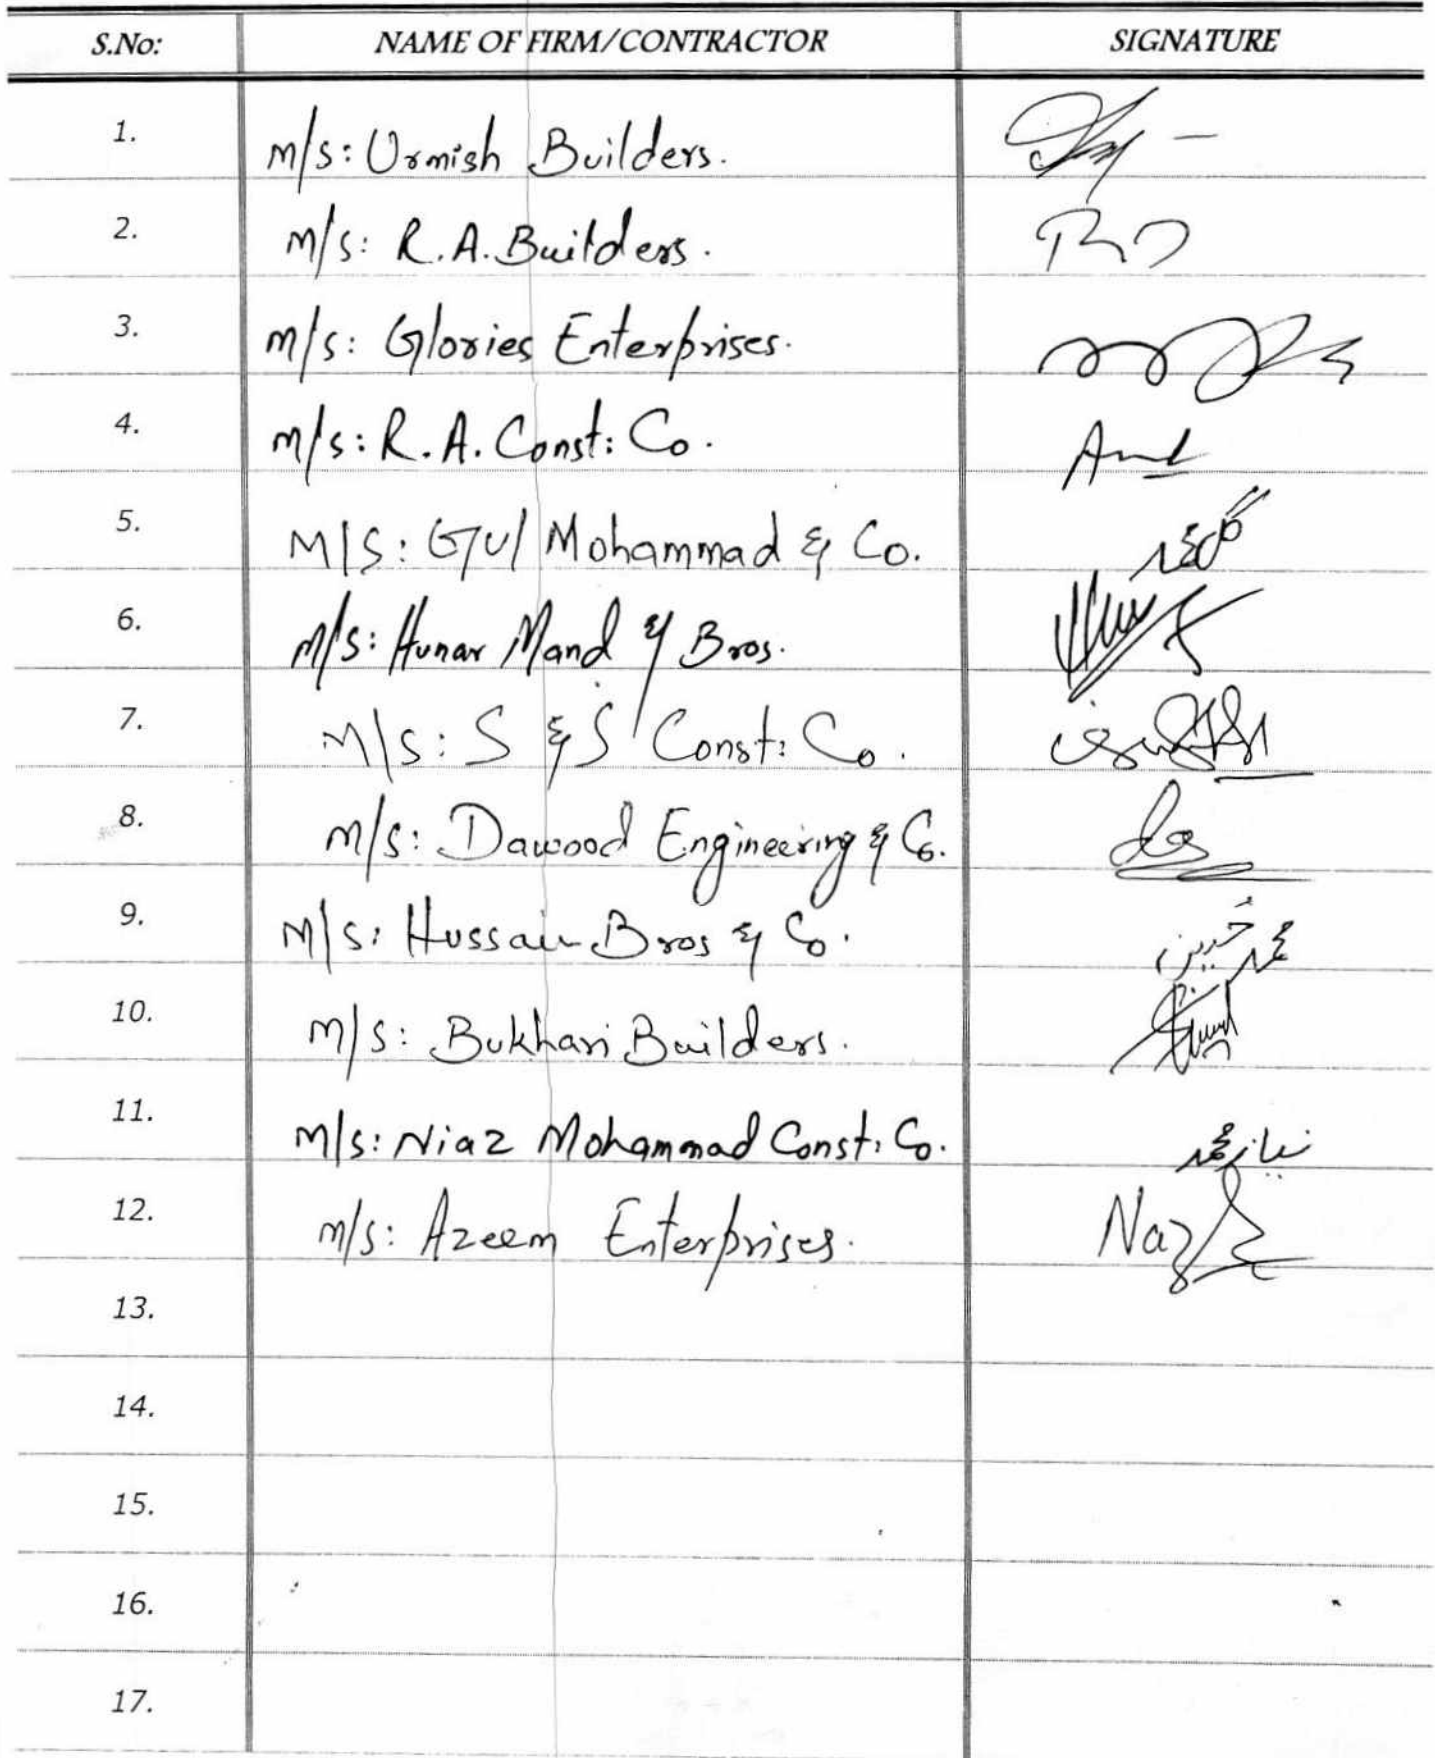 S.No: NAME OF FIRM/CONTRACTOR SIGNATURE
1. M/S: Urmish Builders.
2. M/S: R.A. Builders.
3. M/S: Glories Enterprises.
4. M/S: R.A. Const: Co.
5. M/S: Gul Mohammad & Co. گل محمد
6. M/S: Hunar Mand & Bros.
7. M/S: S & S Const: Co.
8. M/S: Dawood Engineering & Co.
9. M/S: Hussain Bros & Co. محمد حسین
10. M/S: Bukhari Builders.
11. M/S: Niaz Mohammad Const: Co. نیاز محمد
12. M/S: Azeem Enterprises. Naz
13.
14.
15.
16.
17.